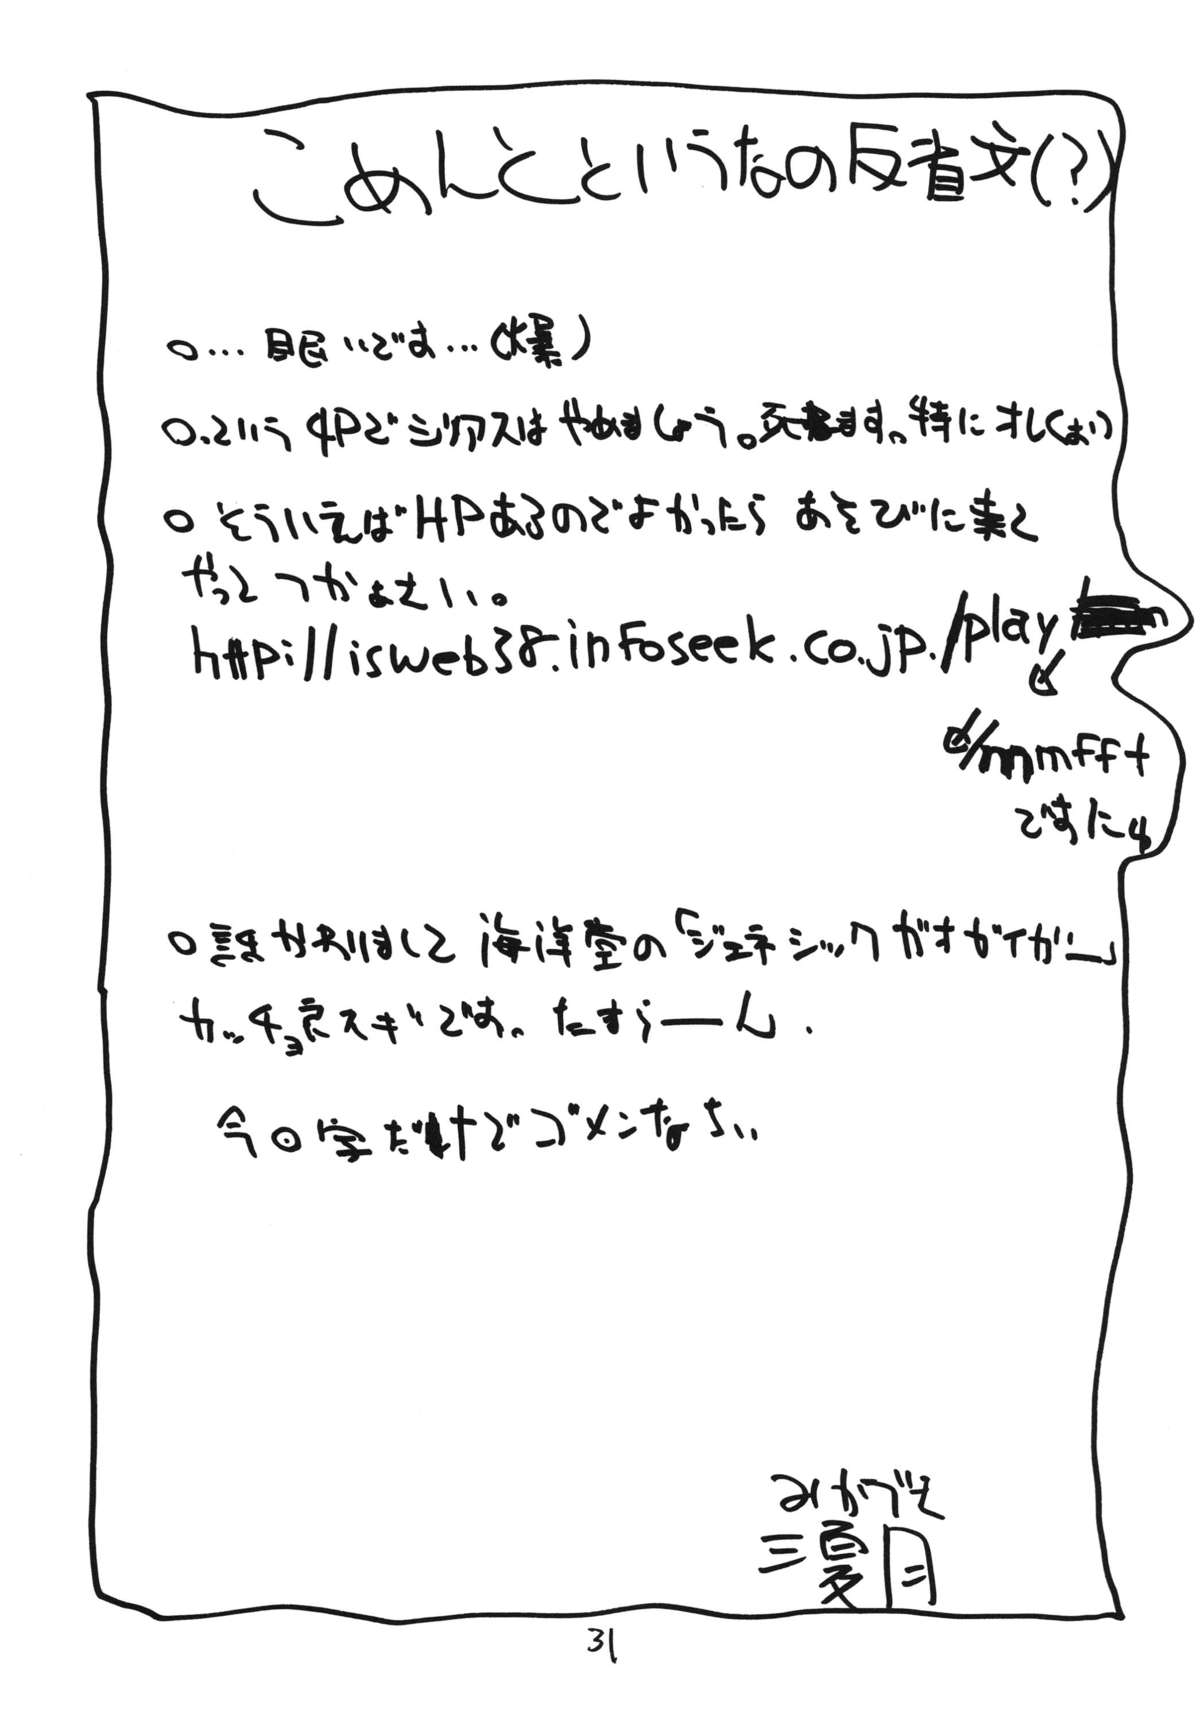 こめんとというなの反省文(?)
○…眠いです…(爆)
○、という4Pでシリアスはやめましょう。死ねます。特にオレ
○そういえばHPあるのでよかったらあそびに来て
やってつかぁさい。
http://isweb38.infoseek.co.jp./play
/mmmfft
ですにゅ
○誰かおしえまして海洋堂の「ジェネシックガオガイガー」
カッチョ良スギです。たすらーん.
今回字だけでゴメンなさい
みかづき
三夏月
31